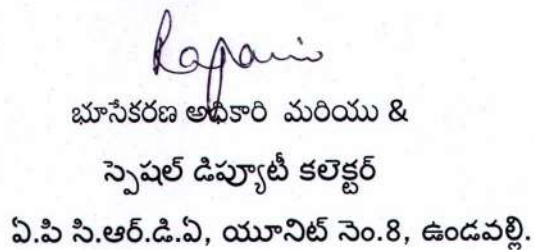 భూసేకరణ అధికారి మరియు &
స్పెషల్ డిప్యూటీ కలెక్టర్
ఏ.పి సి.ఆర్.డి.ఏ, యూనిట్ నెం.8, ఉండవల్లి.